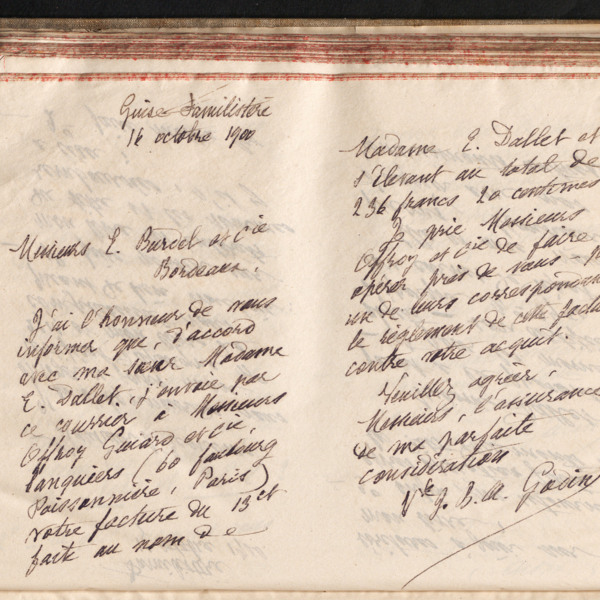 Guise Familistère
16 octobre 1900
Messieurs E. Burdel et Cie
Bordeaux.
J'ai l'honneur de vous
informer que, d'accord
avec ma sœur Madame
E. Dallet, j'envoie par
ce courrier à Messieurs
Offroy Guiard et Cie,
banquiers (60 faubourg
Poissonnière, Paris)
votre facture du 13 ct
faite au nom de
Madame E. Dallet et
s'élevant au total de
236 francs 20 centimes
Je prie Messieurs
Offroy et Cie de faire
opérer près de vous - p
un de leurs correspondan
le règlement de cette factu
contre votre acquit.
Veuillez agréer,
Messieurs, l'assurance
de ma parfaite
considération
Vve J. B. A. Godin